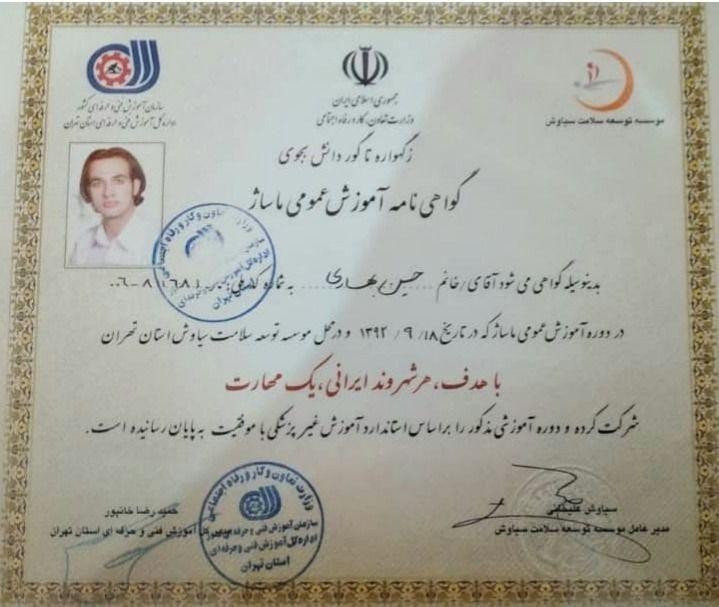 سازمان آموزش فنی و حرفه‌ای کشور
اداره کل آموزش فنی و حرفه‌ای استان تهران
جمهوری اسلامی ایران
وزارت تعاون، کار و رفاه اجتماعی
موسسه توسعه سلامت سیاوش
زگهواره تا گور دانش بجوی
گواهی نامه آموزش عمومی ماساژ
بدینوسیله گواهی می شود آقای/خانم حسین بهاری به شماره کد ملی:
در دوره آموزش عمومی ماساژ که در تاریخ ۱۳۹۲/۹/۱۸ و در محل موسسه توسعه سلامت سیاوش استان تهران
با هدف، هر شهروند ایرانی، یک مهارت
شرکت کرده و دوره آموزشی مذکور را براساس استاندارد آموزش غیر پزشکی با موفقیت به پایان رسانیده است.
وزارت تعاون و کار و رفاه اجتماعی
سازمان آموزش فنی و حرفه‌ای
اداره کل آموزش فنی و حرفه‌ای
استان تهران
حمید رضا خانپور
آموزش فنی و حرفه ای استان تهران
سیاوش
مدیر عامل موسسه توسعه سلامت سیاوش